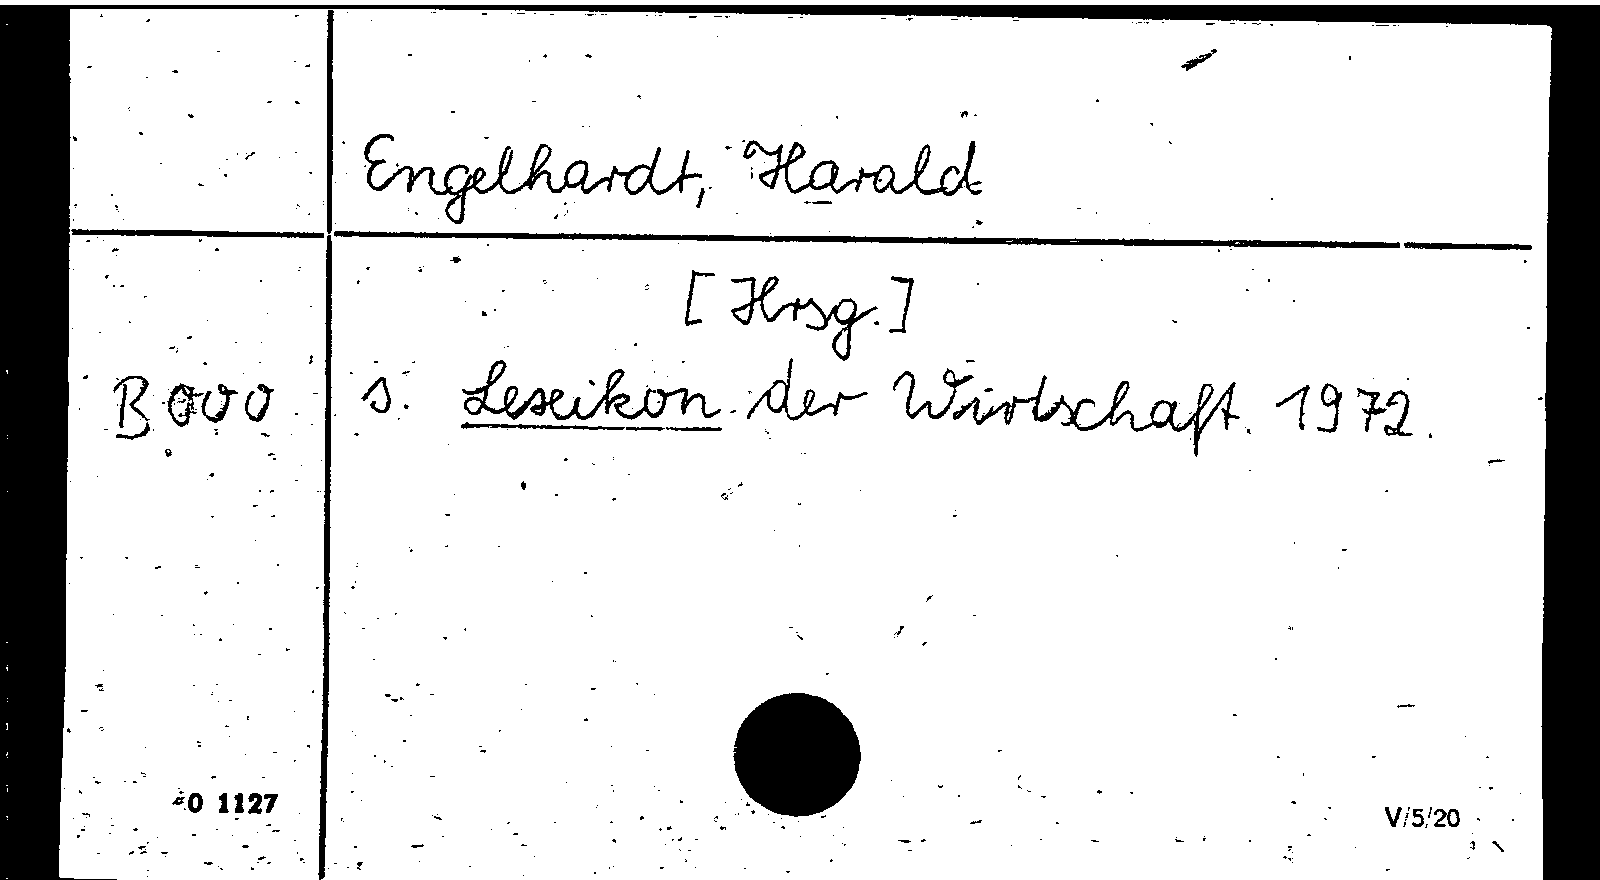 Engelhardt, Harald
[Hrsg.]
B 000 s. Lexikon der Wirtschaft. 1972.
O 1127
V/5/20